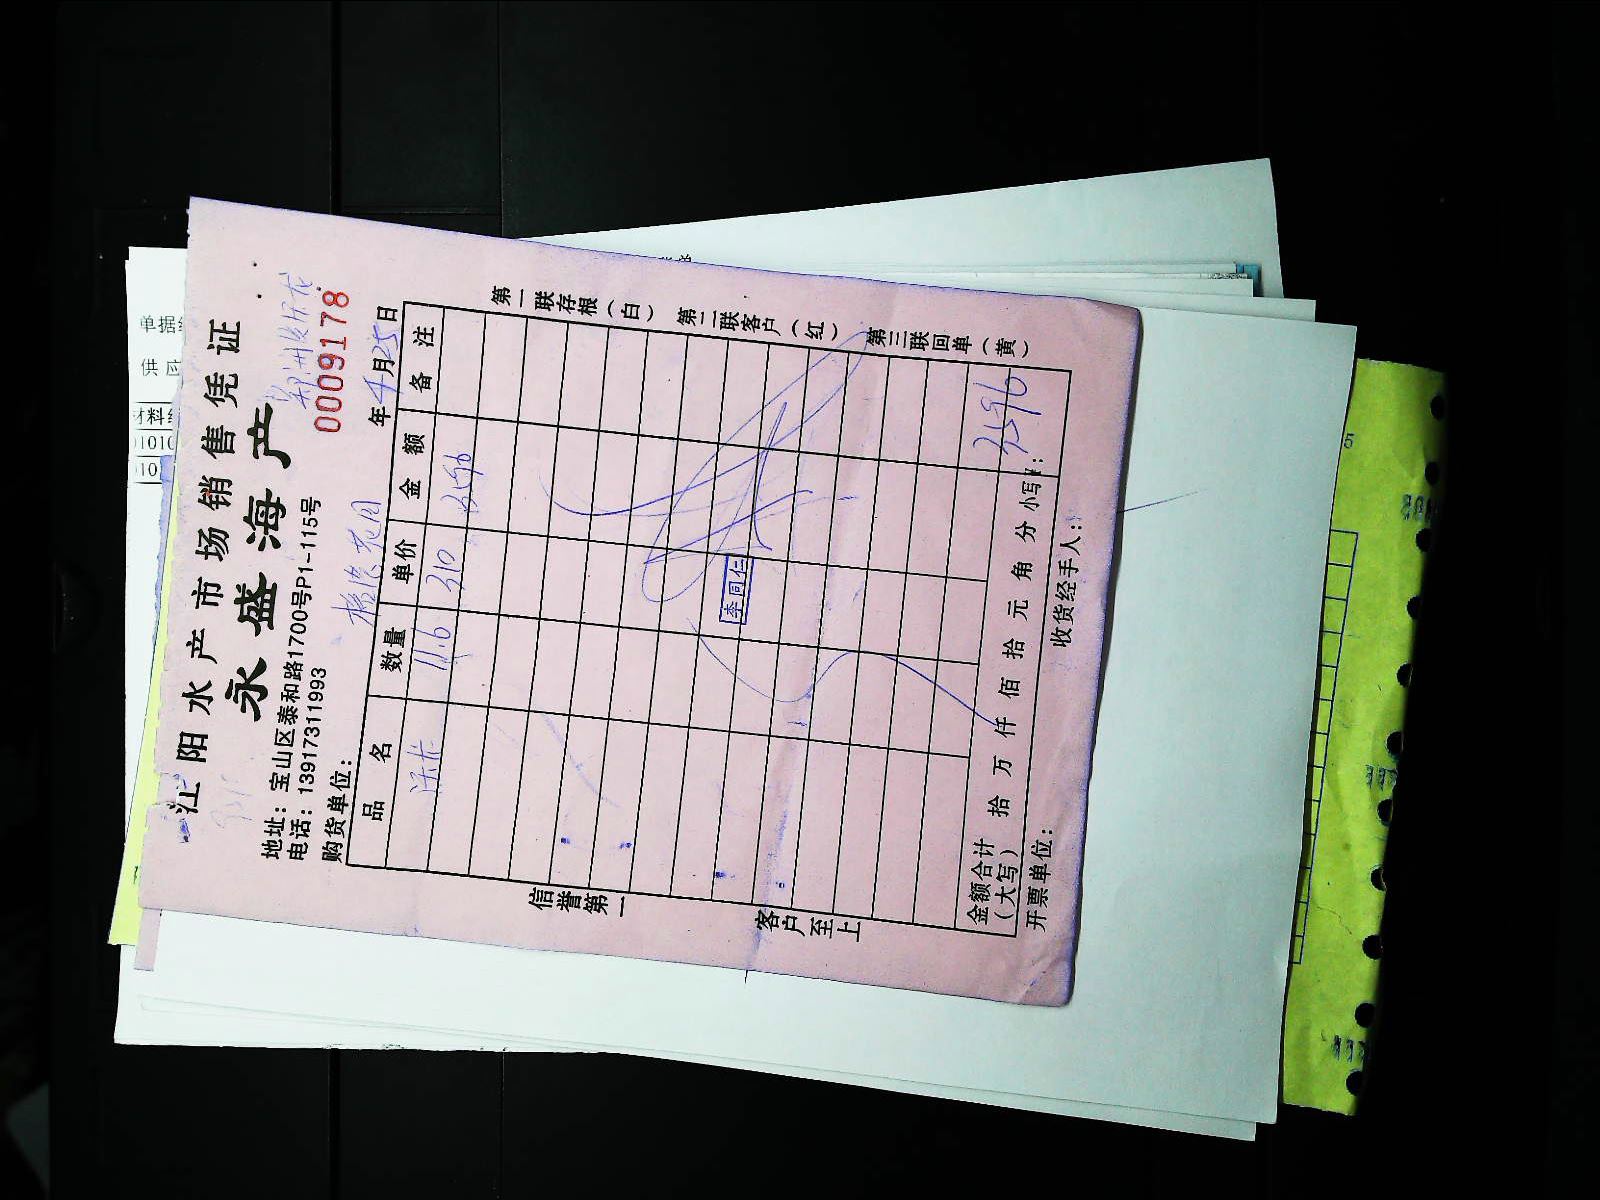 江阳水产市场销售凭证
永盛海产
地址：宝山区泰和路1700号P1-115号
电话：13917311993
0009178
购货单位：
年4月25日
品名 数量 单价 金额 备注
11.6 310 3596
李同仁
金额合计（大写） 拾 万 仟 佰 拾 元 角 分 小写¥：3596
开票单位： 收货经手人：
第一联存根（白） 第二联客户（红） 第三联回单（黄）
信誉第一
客户至上
单据
供应
材料